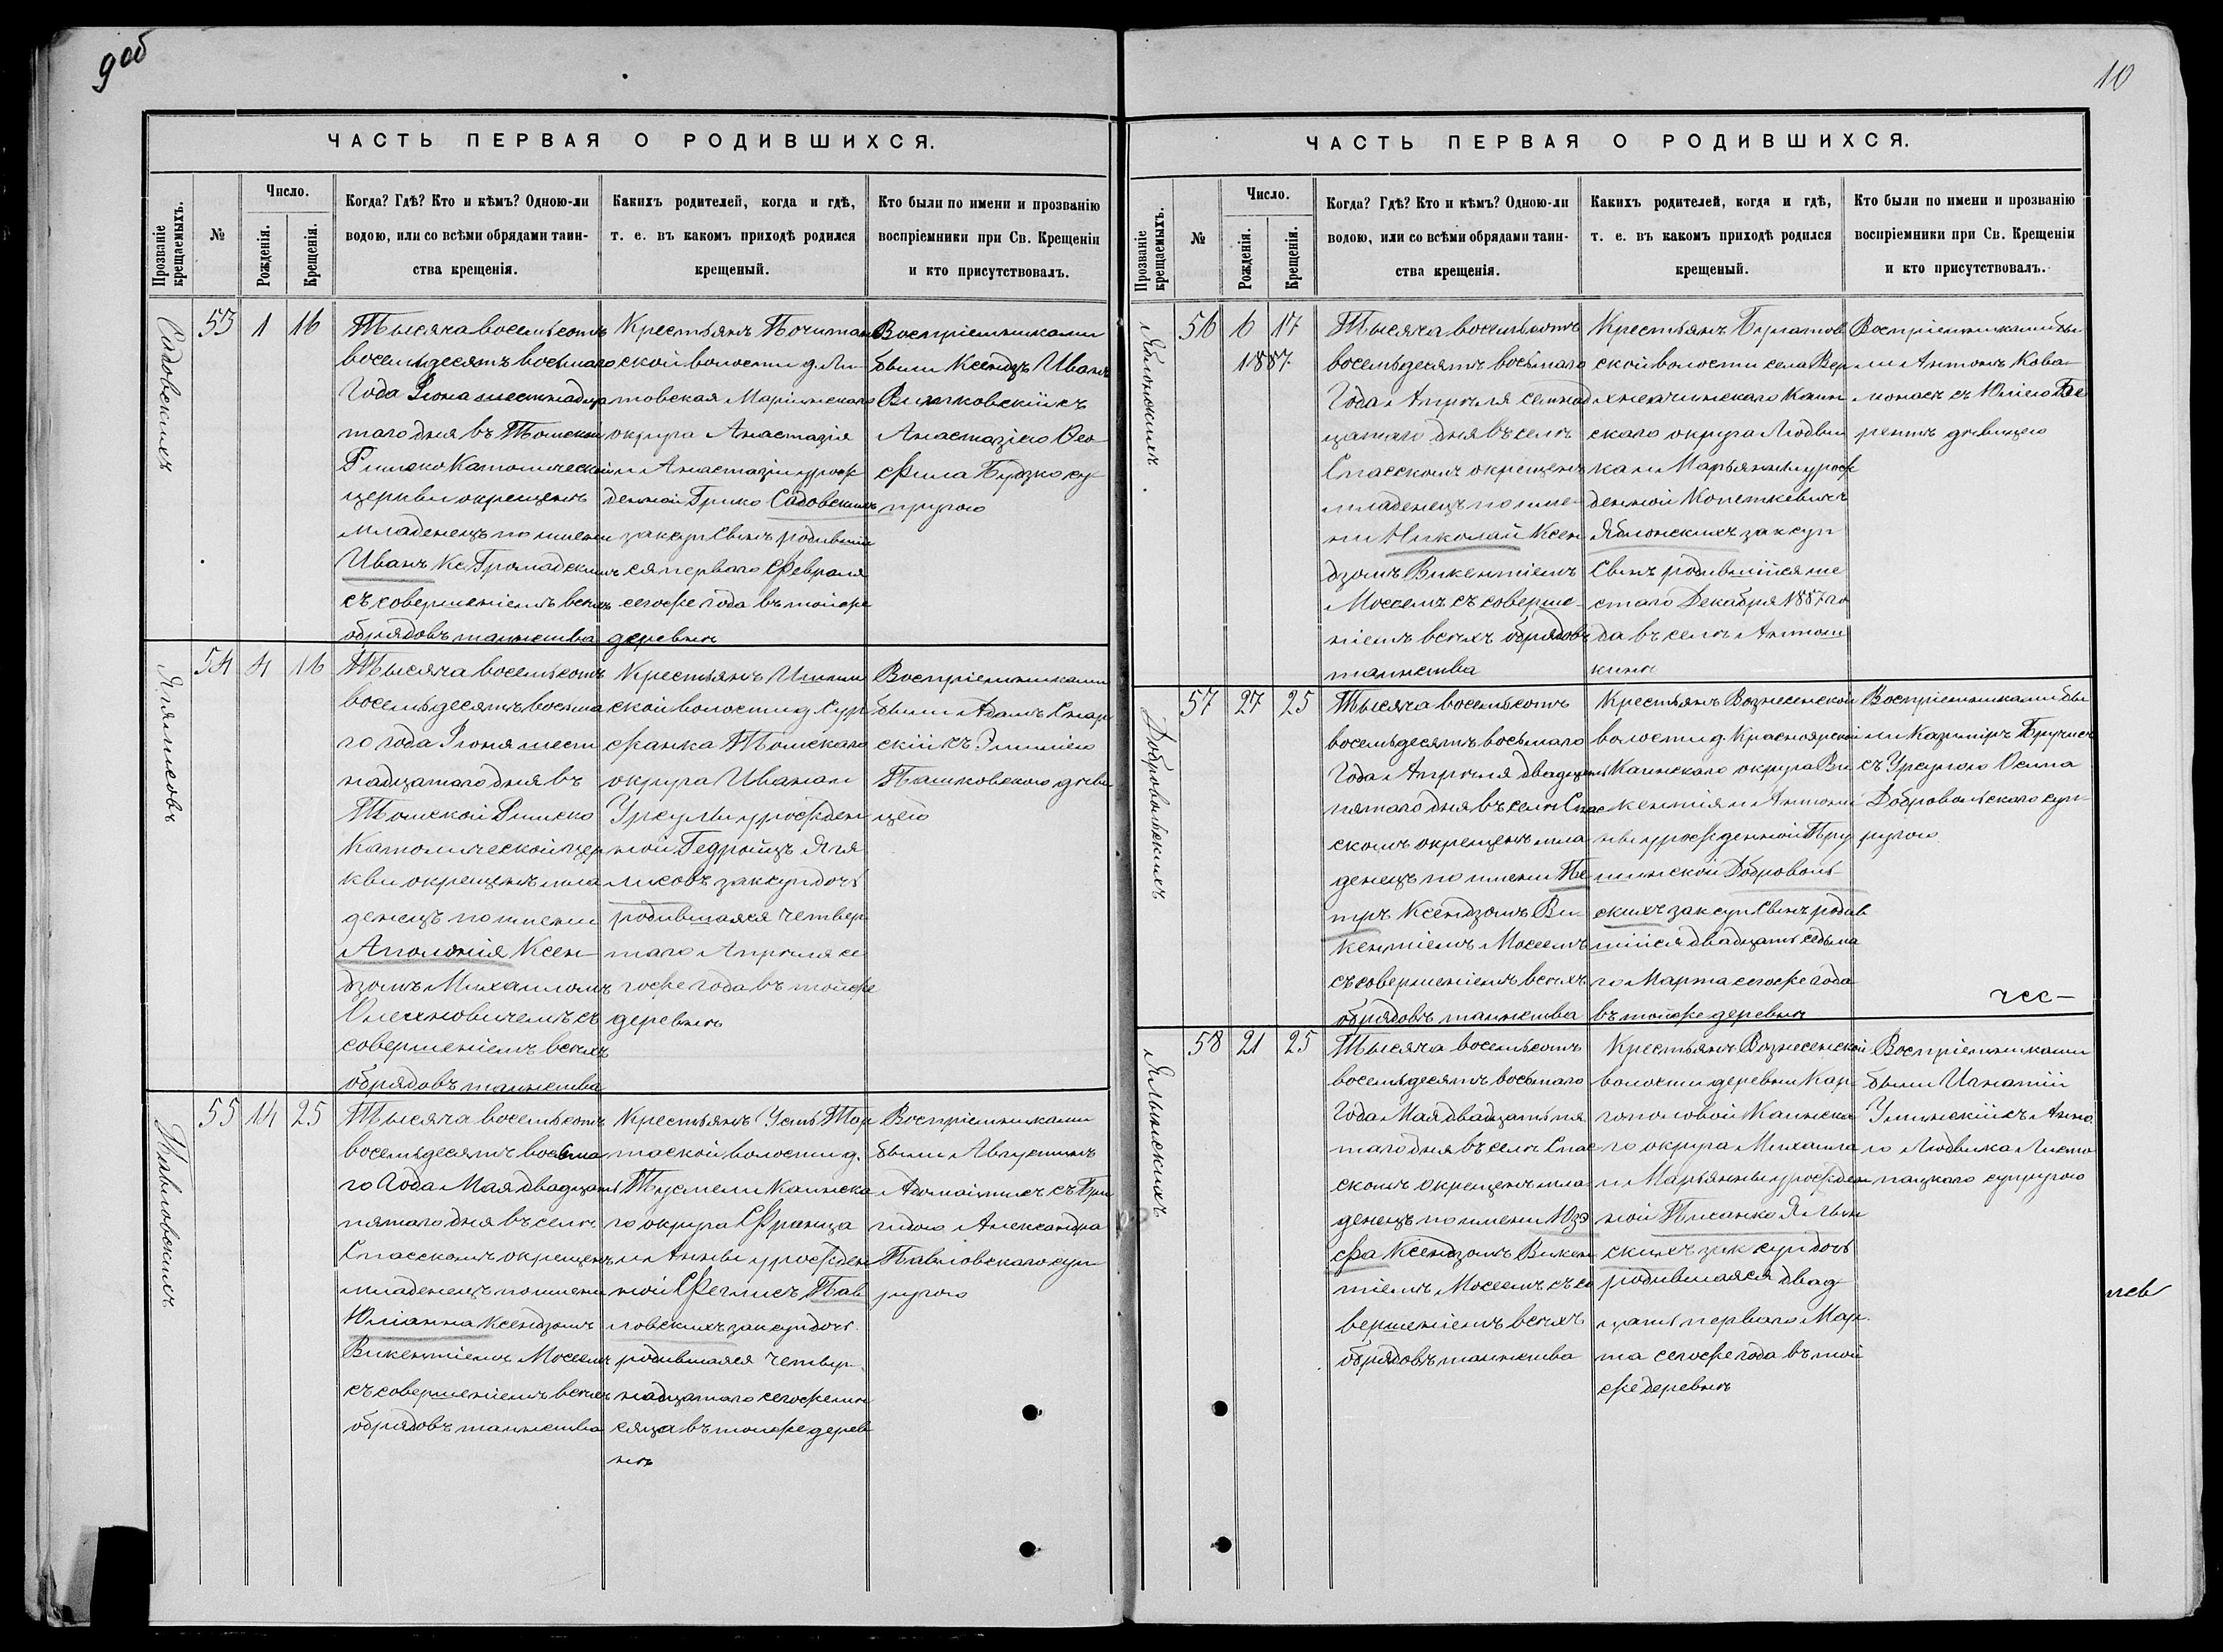 9об
ЧАСТЬ ПЕРВАЯ О РОДИВШИХСЯ.
Прозваніе крещаемыхъ.
№
Число.
Рожденія.
Крещенія.
Когда? Гдѣ? Кто и кѣмъ? Одною-ли
водою, или со всѣми обрядами таин-
ства крещенія.
Какихъ родителей, когда и гдѣ,
т. е. въ какомъ приходѣ родился
крещеный.
Кто были по имени и прозванію
воспріемники при Св. Крещеніи
и кто присутствовалъ.
Садовскихъ
53 1 16
Тысяча восемьсотъ
восемьдесятъ восьмаго
Года Іюня шестнадца
таго дня въ Томской
Римско Католической
церкви окрещенъ
младенецъ по имени
Иванъ Кс. Громадскимъ
съ совершеніемъ всѣхъ
обрядовъ таинства
Крестьянъ Почитан
ской волости д. Ли
товская Маріинскаго
округа Анастазія
и Анастазіи урож
денной Грико Садовскихъ
зак суп Сынъ родивші
ся перваго Февраля
сегоже года въ тойже
деревнѣ
Воспріемниками
были Ксендзъ Иванъ
Витковскій съ
Анастазіею Ѳео
фила Будзко су
пругою
54 4 16
Тысяча восемьсотъ
восемьдесятъ восьма
го года Іюня шест
надцатаго дня въ
Томской Римско
Католической цер
кви окрещенъ мла
денецъ по имени
Аполонія Ксен
дзомъ Михаиломъ
Олехновичемъ съ
совершеніемъ всѣхъ
обрядовъ таинства
Крестьянъ Ишим
ской волости д. Сур
жанка Томскаго
округа Ивана и
Урсулы урожден
ной Гедройцъ Ягя
лисовъ зак суп дочь
родившаяся четвер
таго Апрѣля се
гоже года въ тойже
деревнѣ
Воспріемниками
были Адамъ Снар
скій съ Эмиліею
Пашковскою дѣви
цею
Павловскихъ
55 14 25
Тысяча восемьсотъ
восемьдесятъ восьма
го Года Мая двадцать
пятаго дня въ селѣ
Спасскомъ окрещенъ
младенецъ по имени
Юліанна Ксендзомъ
Викентіемъ Моссемъ
съ совершеніемъ всѣхъ
обрядовъ таинства
Крестьянъ Усть Тар
таской волости д.
Тусмели Каинска
го округа Франца
и Анны урожден
ной Феглисъ Пав
ловскихъ зак суп дочь
родившаяся четыр
надцатаго сегоже мѣ
сяца въ тойже дерев
нѣ
Воспріемниками
были Августинъ
Адомайтисъ съ Бри
гидою Александра
Павловскаго суп
ругою
10
ЧАСТЬ ПЕРВАЯ О РОДИВШИХСЯ.
Прозваніе крещаемыхъ.
№
Число.
Рожденія.
Крещенія.
Когда? Гдѣ? Кто и кѣмъ? Одною-ли
водою, или со всѣми обрядами таин-
ства крещенія.
Какихъ родителей, когда и гдѣ,
т. е. въ какомъ приходѣ родился
крещеный.
Кто были по имени и прозванію
воспріемники при Св. Крещеніи
и кто присутствовалъ.
Яблонскихъ
56 6 17
1887
Тысяча восемьсотъ
восемьдесятъ восьмаго
Года Апрѣля семнад
цатаго дня въ селѣ
Спасскомъ окрещенъ
младенецъ по име
ни Николай Ксен
дзомъ Викентіемъ
Моссемъ съ соверше
ніемъ всѣхъ обрядовъ
таинства
Крестьянъ Булатов
ской волости села Вер
хнеичинскаго Каин
скаго округа Людви
ка и Марьянны урож
денной Копеткевичъ
Яблонскихъ зак суп
Сынъ родившійся ше
стаго Декабря 1887 го
да въ селѣ Антош
кинѣ
Воспріемниками бы
ли Антонъ Кова
монасъ съ Юліею Бе
рентъ дѣвицею
Добровольскихъ
57 27 25
Тысяча восемьсотъ
восемьдесятъ восьмаго
Года Апрѣля двадцать
пятаго дня въ селѣ Спас
скомъ окрещенъ мла
денецъ по имени Пе
тръ Ксендзомъ Ви
кентіемъ Моссемъ
съ совершеніемъ всѣхъ
обрядовъ таинства
Крестьянъ Вознесенской
волости д. Красноярской
Каинскаго округа Ви
кентія и Антони
ны урожденной Пру
шинской Доброволь
скихъ зак суп Сынъ родив
шійся двадцать седьма
го Марта сегоже года
въ тойже деревнѣ
Воспріемниками бы
ли Казиміръ Бручисъ
съ Урсулою Осипа
Добровольскаго суп
ругою
чес-
Ялынскихъ
58 21 25
Тысяча восемьсотъ
восемьдесятъ восьмаго
Года Мая двадцать пя
таго дня въ селѣ Спас
скомъ окрещенъ мла
денецъ по имени Юзе
фа Ксендзомъ Викен
тіемъ Моссемъ съ со
вершеніемъ всѣхъ
обрядовъ таинства
Крестьянъ Вознесенской
волости деревни Кар
гополовой Каинска
го округа Михаила
и Марьянны урожден
ной Писанко Ялын
скихъ зак суп дочь
родившаяся двад
цать перваго Мар
та сегоже года въ той
же деревнѣ
Воспріемниками
были Игнатій
Улинскій съ Анно
ю Людвика Листо
пацкаго супругою